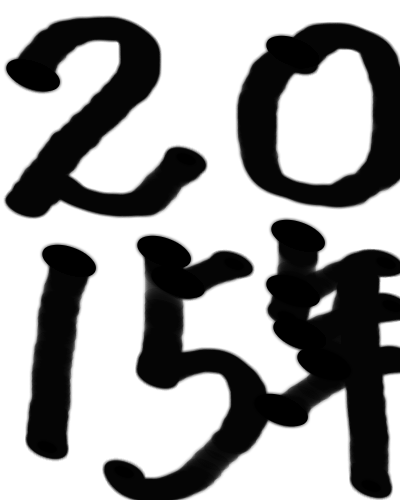 20
15年